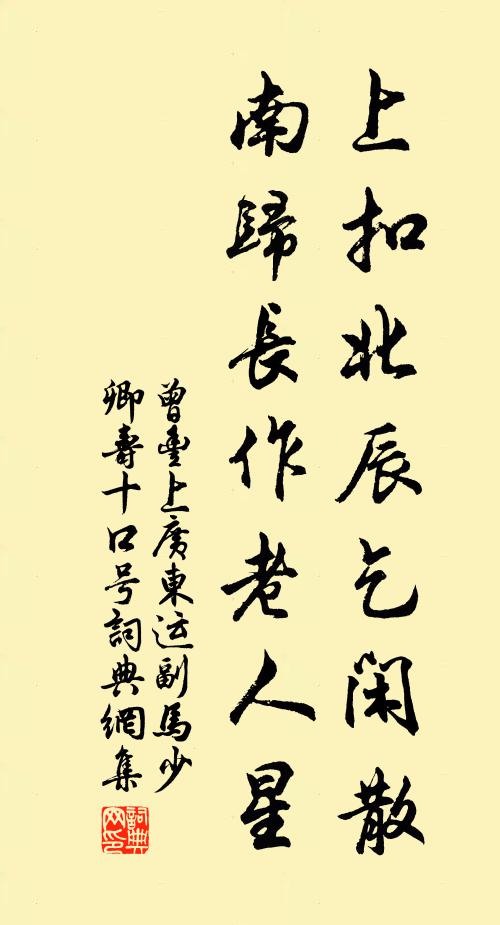 上扣北辰乞闲散
南歸長作老人星
曾豐上廣東运副馬少
卿壽十口号詞典網集
詞典網印